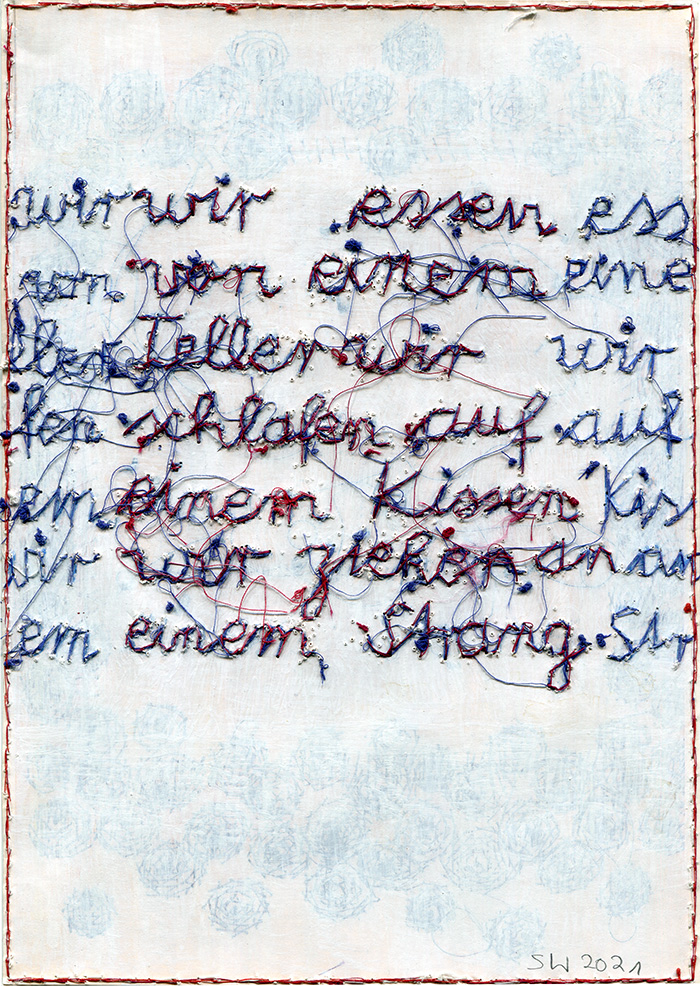 wir wir essen ess
von von einem eine
lben Teller wir wir
fen schlafen auf auf
em einem Kissen Kis
wir wir ziehen an an
em einem Strang Str
SW 2021